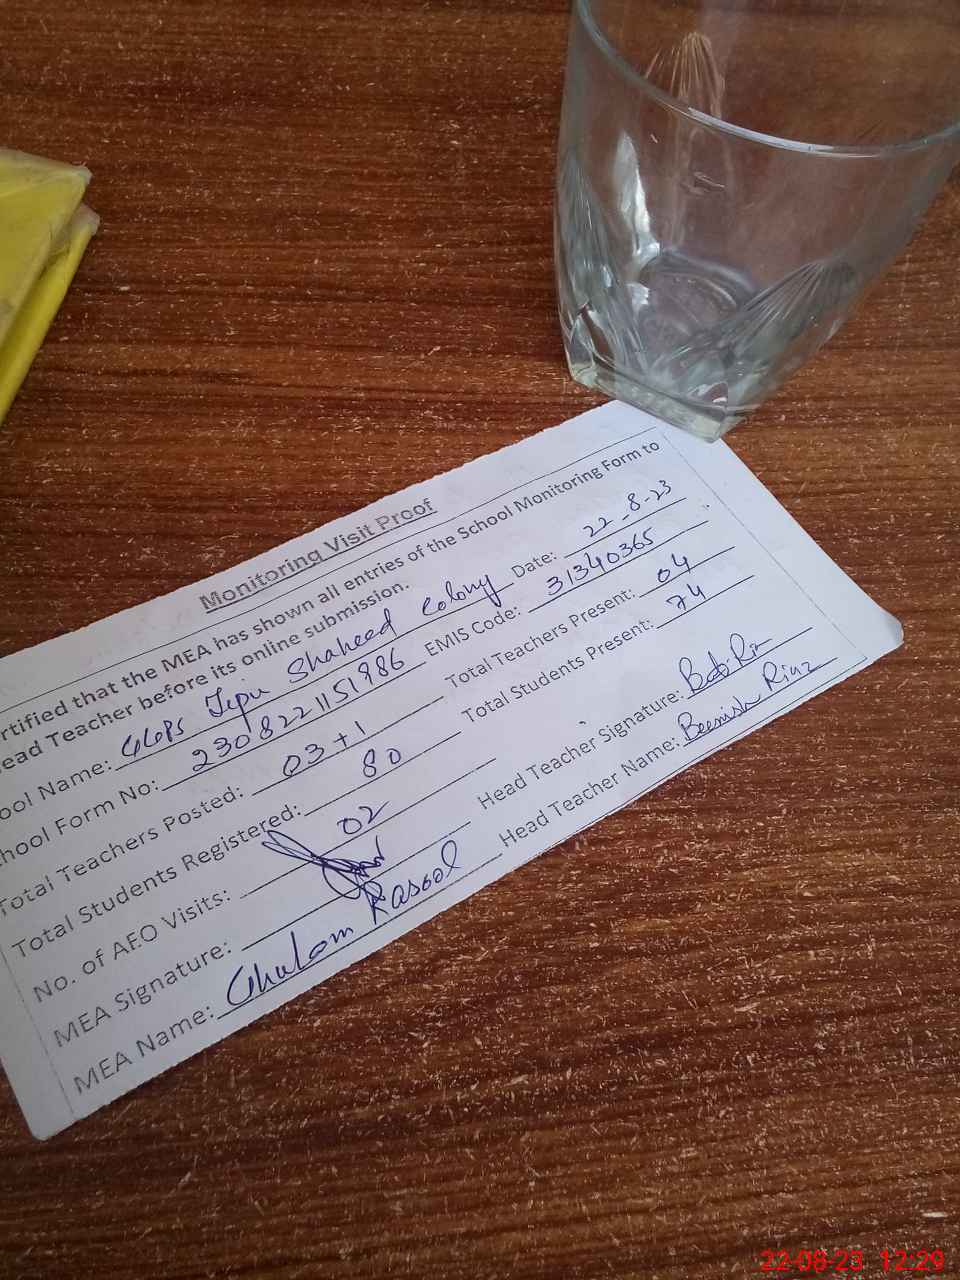 Monitoring Visit Proof
rtified that the MEA has shown all entries of the School Monitoring Form to
ead Teacher before its online submission.
ool Name: GGPS Tepu Shaheed Colony Date: 22-8-23
hool Form No: 2308221151986 EMIS Code: 31340365
Total Teachers Posted: 03+1 Total Teachers Present: 04
Total Students Registered: 80 Total Students Present: 74
No. of AEO Visits: 02
MEA Signature: Head Teacher Signature:
MEA Name: Ghulam Rasool Head Teacher Name: Beenish Riaz
22-08-23 12:29